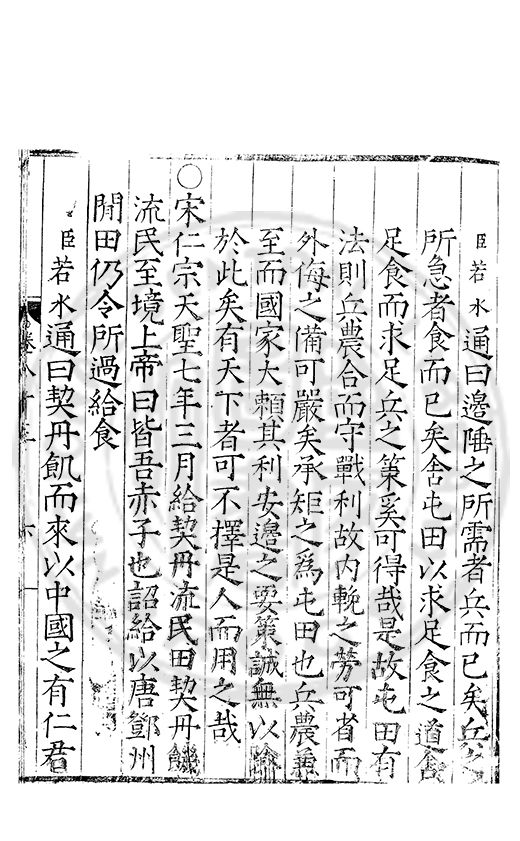 臣若水通曰邊陲之所需者兵而已矣兵之
所急者食而已矣舍屯田以求足食之道舍
足食而求足兵之策奚可得哉是故屯田有
法則兵農合而守戰利故内輓之勞可省而
外侮之備可嚴矣承矩之為屯田也兵農兼
至而國家大賴其利安邊之要策誠無以踰
於此矣有天下者可不擇是人而用之哉
○宋仁宗天聖七年三月給契丹流民田契丹饑
流民至境上帝曰皆吾赤子也詔給以唐鄧州
閒田仍令所過給食
臣若水通曰契丹飢而來以中國之有仁君